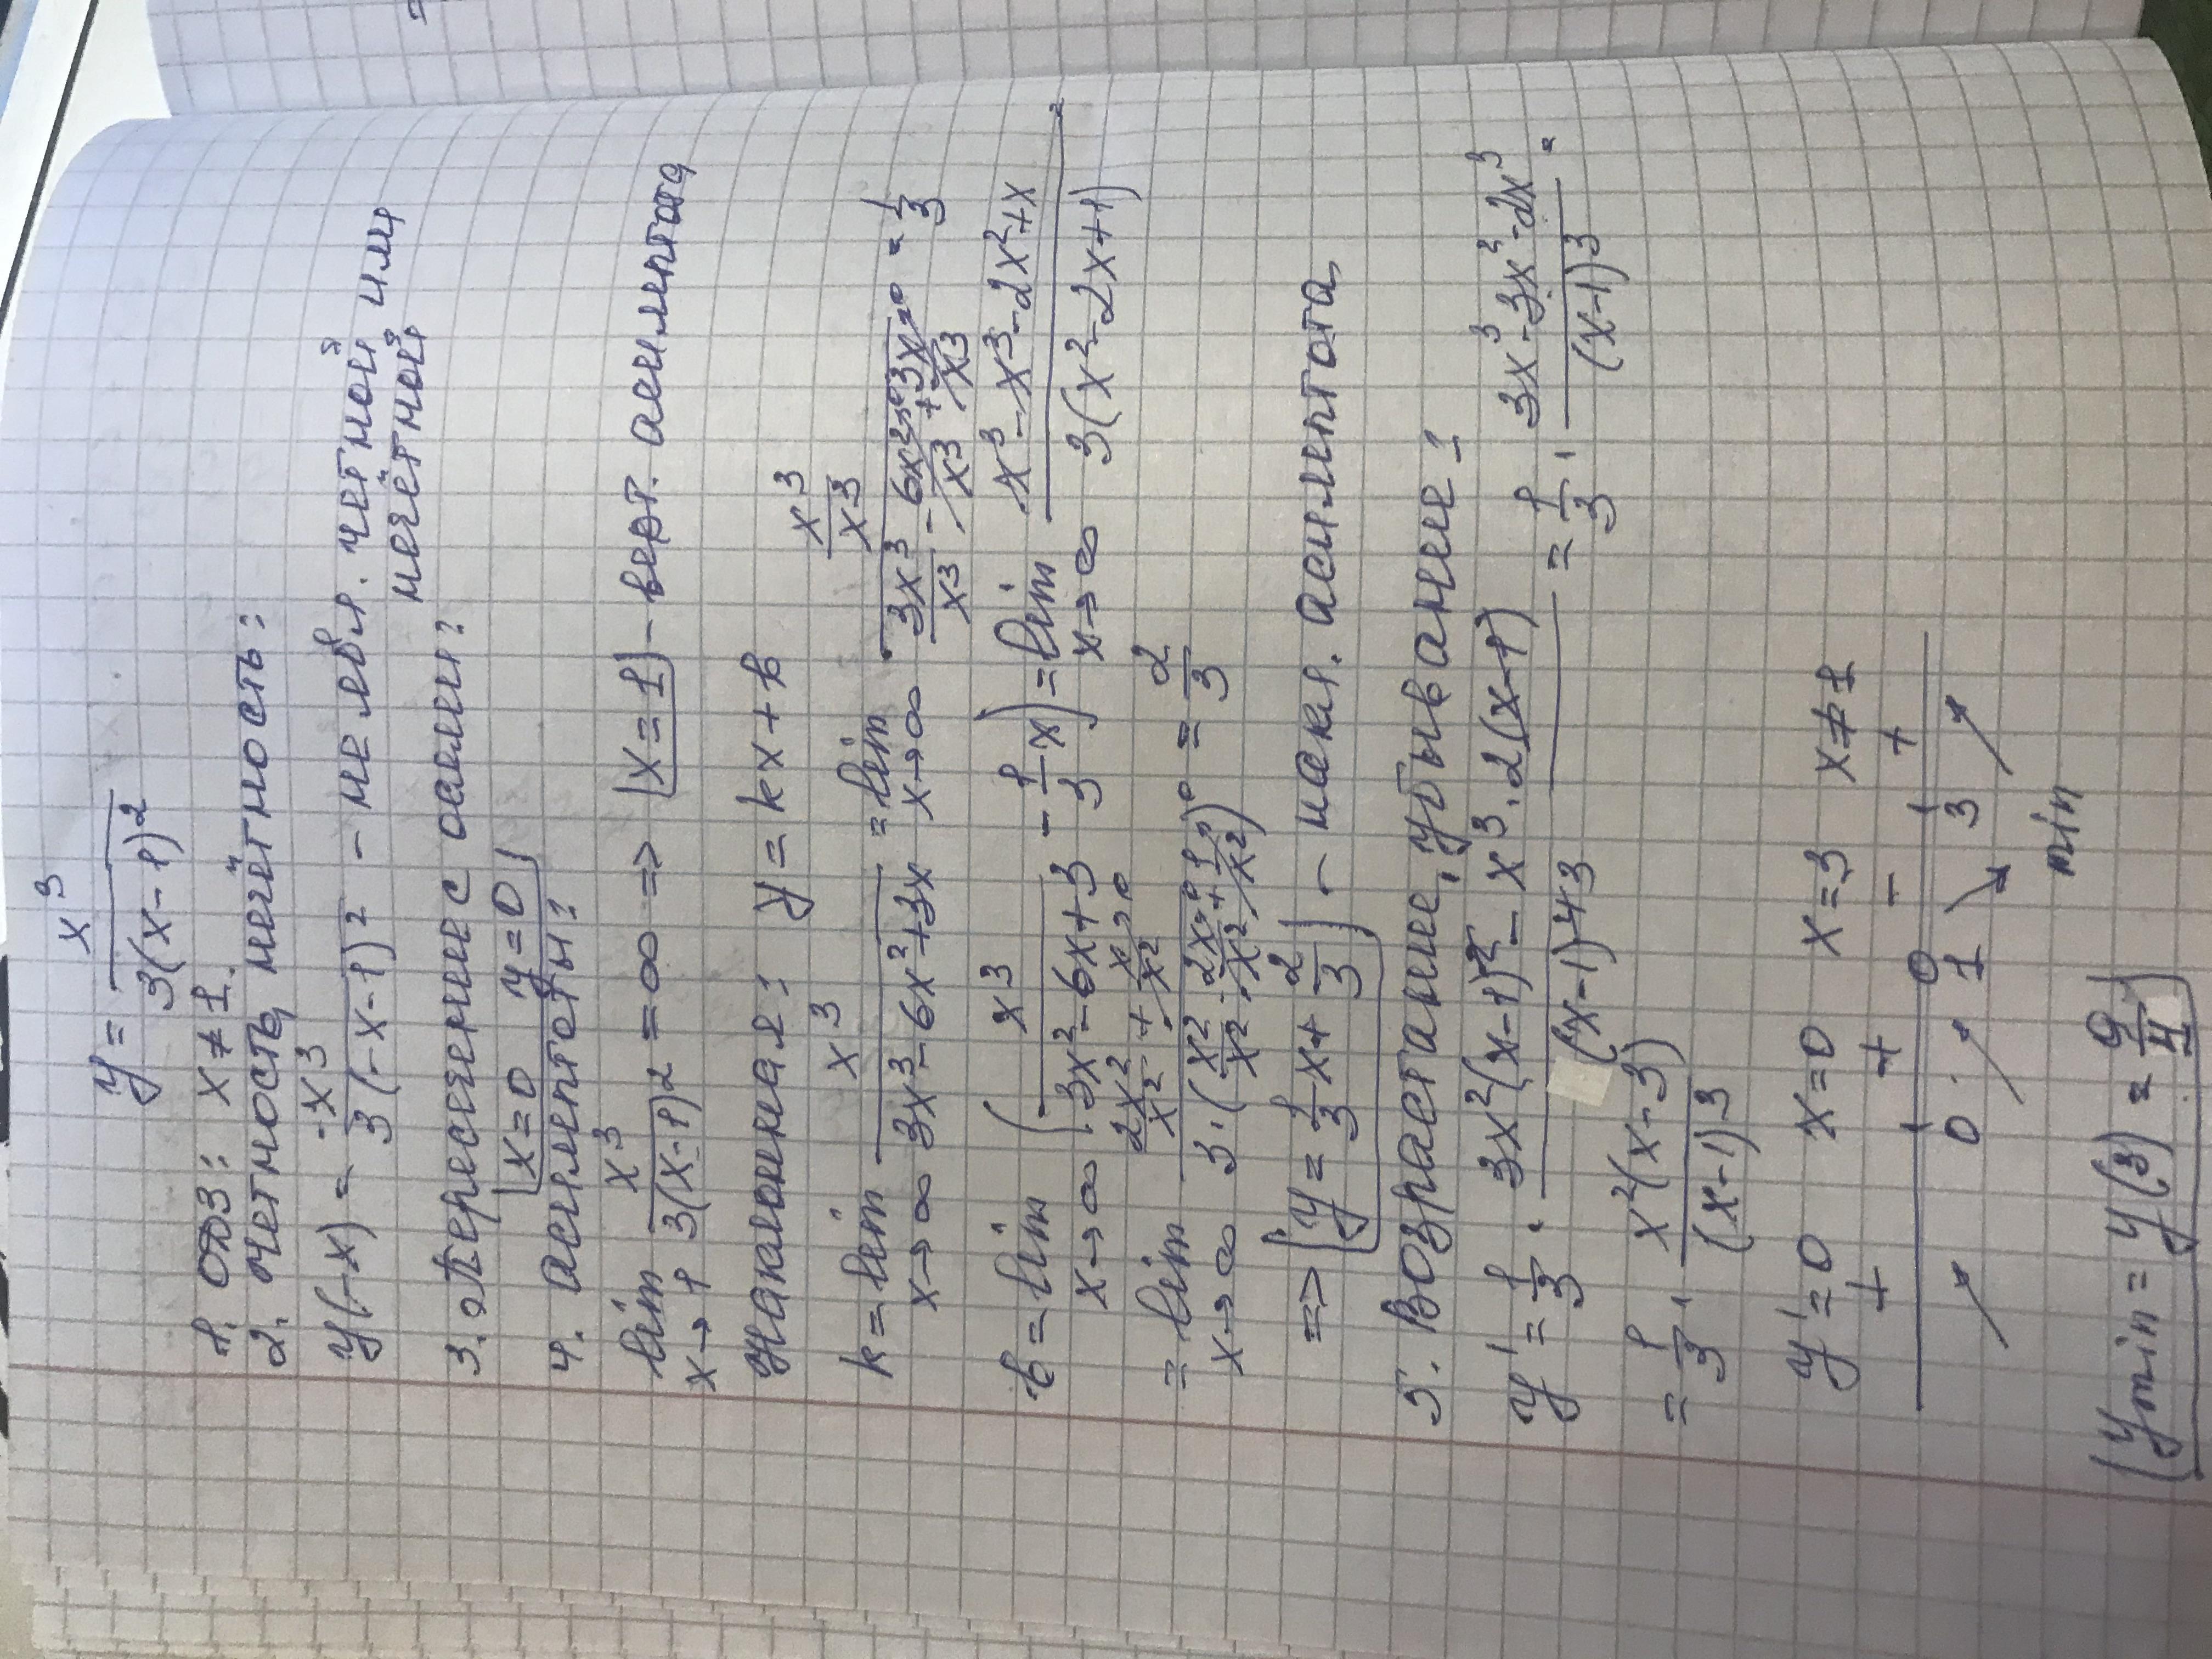 y = x³ / 3(x-1)²
1. ОДЗ: x ≠ 1.
2. четность, нечётность:
y(-x) = -x³ / 3(-x-1)² - не явл. четной или
нечётной
3. Пересечение с осями:
x=0 y=0
4. асимптоты:
lim x→1 x³ / 3(x-1)² = ∞ => x=1 - верт. асимптота
Наклонная: y = kx + b
k = lim x→∞ x³ / 3x³-6x²+3x = lim x→∞ x³/x³ / 3x³/x³ - 6x²/x³→0 + 3x/x³→0 = 1/3
b = lim x→∞ ( x³ / 3x²-6x+3 - 1/3 x) = lim x→∞ x³-x³-2x²+x / 3(x²-2x+1) =
= lim x→∞ 2x²/x² + x/x²→0 / 3·(x²/x² - 2x/x²→0 + 1/x²→0) = 2/3
=> y = 1/3 x + 2/3 - накл. асимптота
5. Возрастание, убывание:
y' = 1/3 · 3x²(x-1)² - x³·2(x-1) / (x-1)⁴3 = 1/3 · 3x³-3x²-2x³ / (x-1)3 =
= 1/3 · x²(x-3) / (x-1)3
y'=0 x=0 x=3 x≠1
+ + - +
0 1 3
min
ymin = y(3) = 9/4